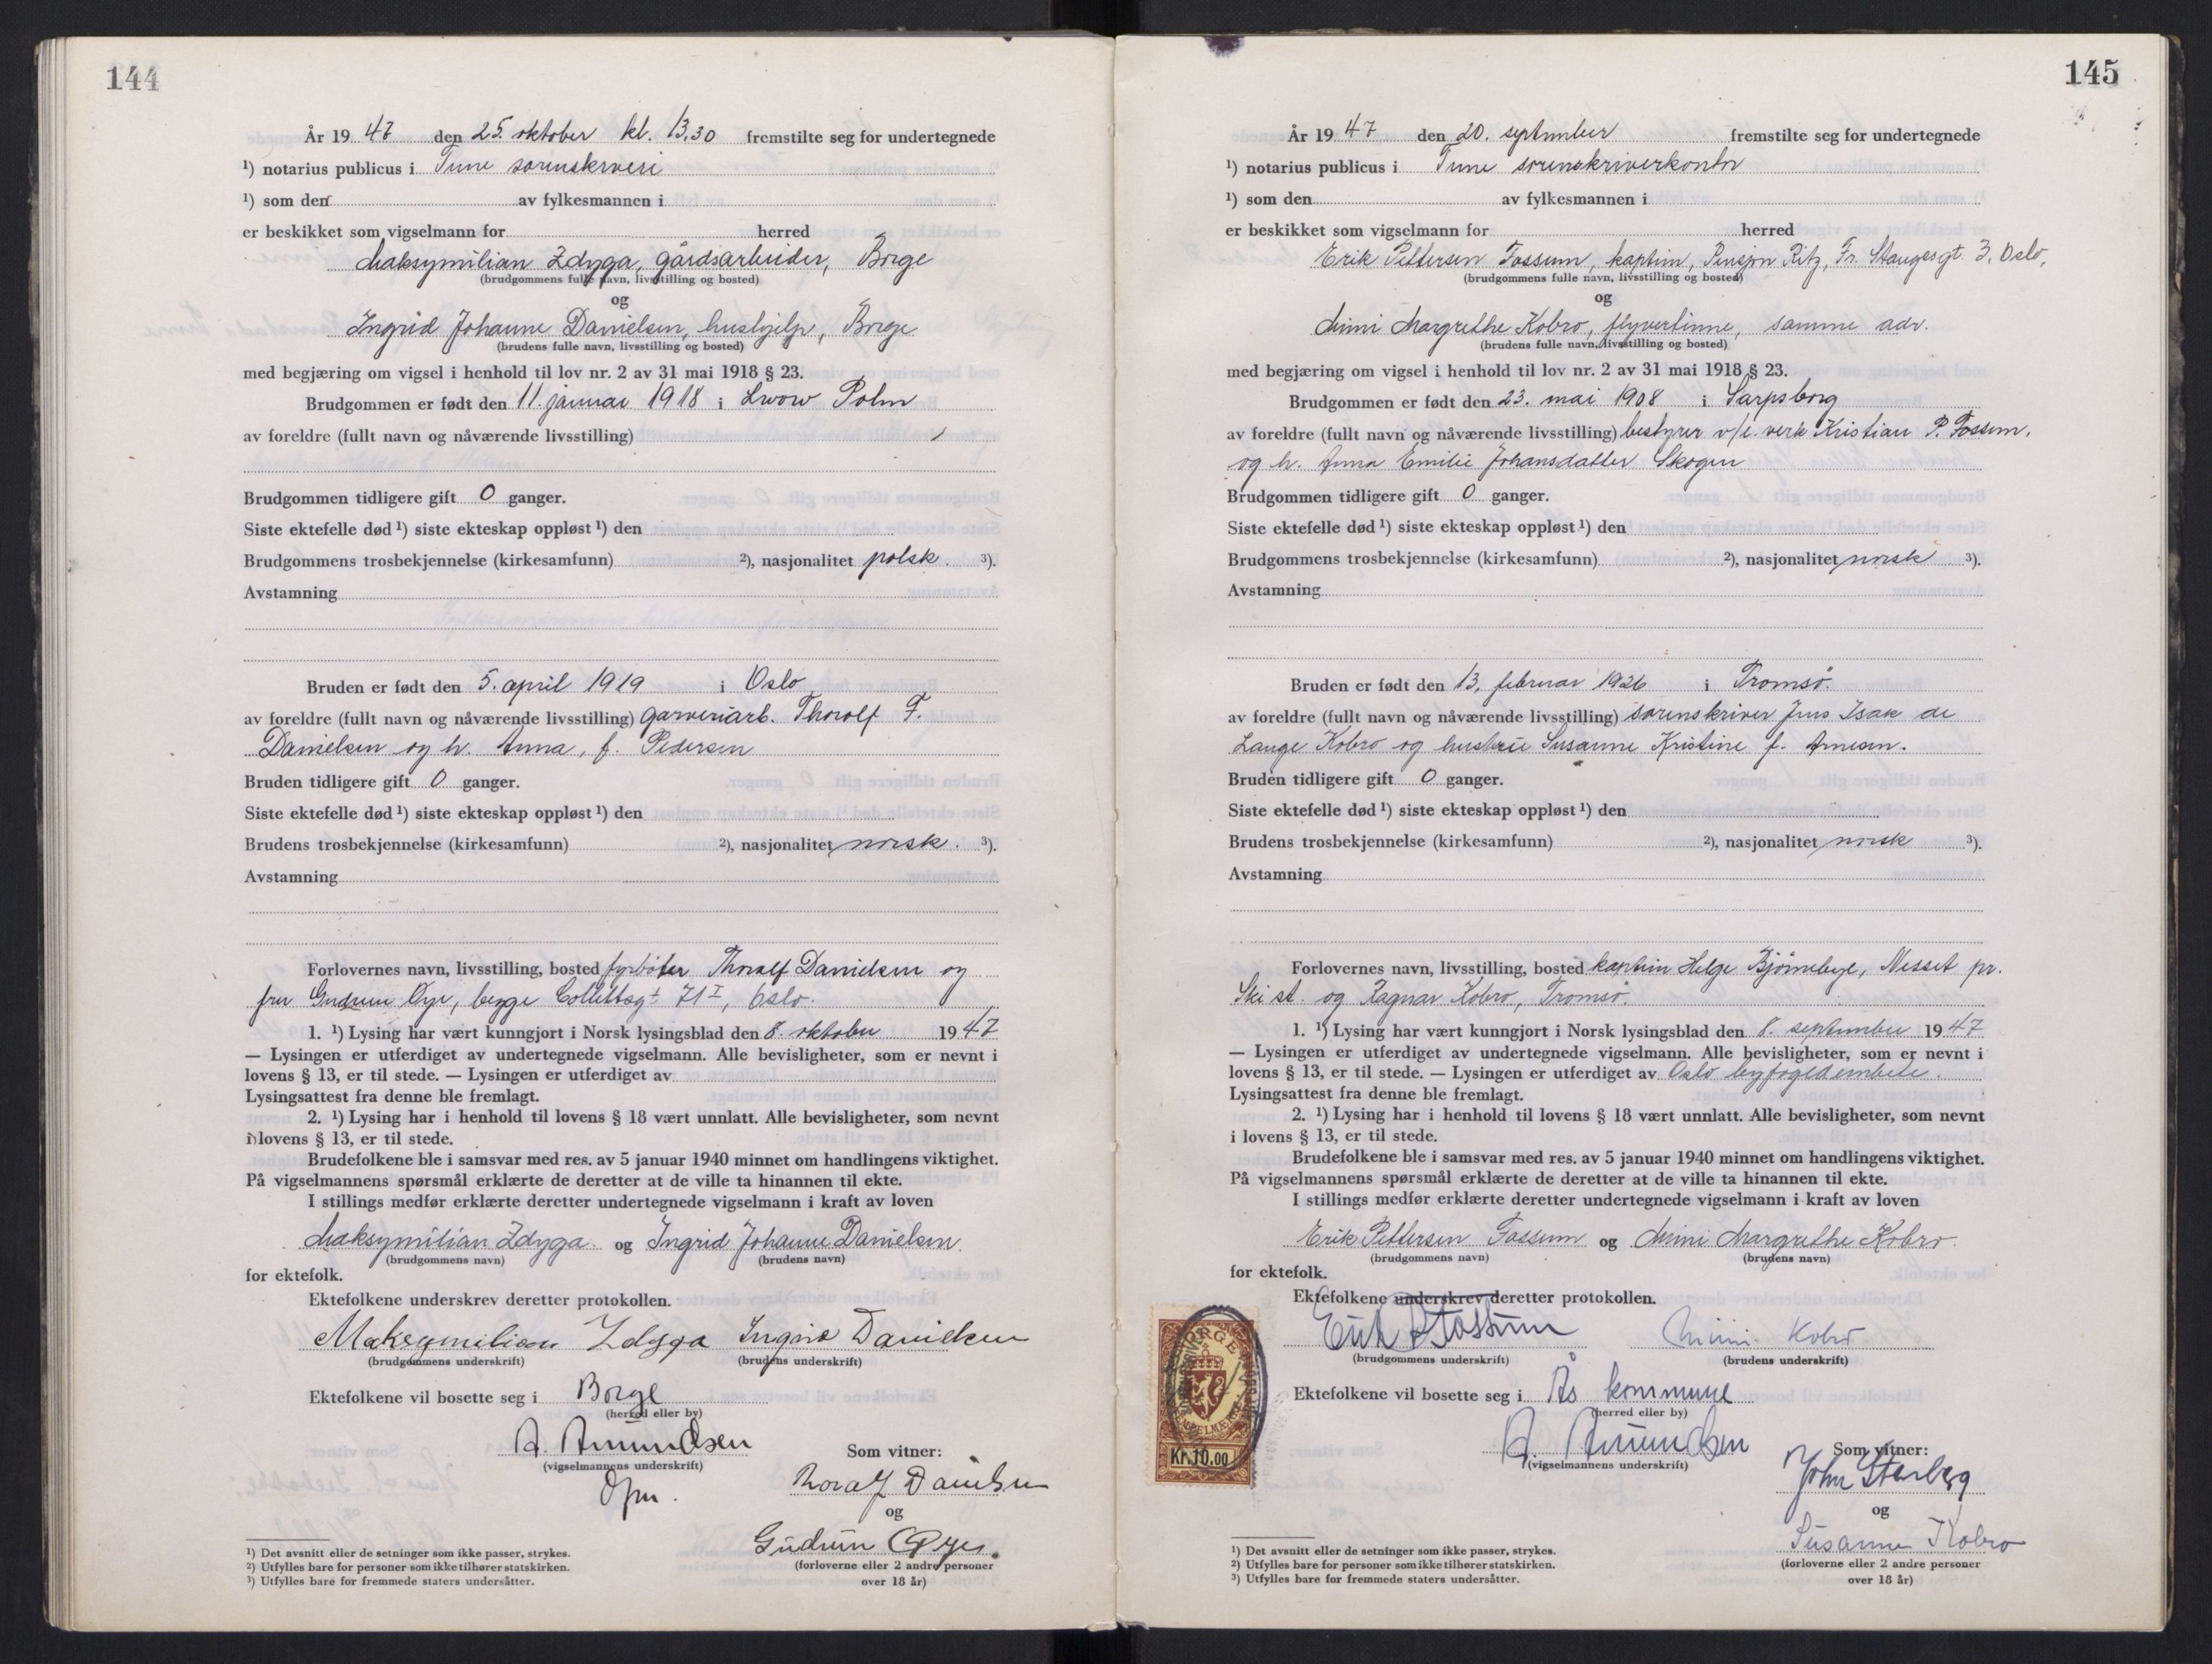 144
År 19 47 den 25. oktober kl. 13.30 fremstilte seg for undertegnede
¹) notarius publicus i Tune sorenskriveri
¹) som den av fylkesmannen i
er beskikket som vigselmann for herred
Maksymilian Zdyga, gårdsarbeider, Borge
(brudgommens fulle navn, livsstilling og bosted)
og
Ingrid Johanne Danielsen, hushjelp, Borge
(brudens fulle navn, livsstilling og bosted)
med begjæring om vigsel i henhold til lov nr. 2 av 31 mai 1918 § 23.
Brudgommen er født den 11. januar 1918 i Lwow Polen
av foreldre (fullt navn og nåværende livsstilling)
Brudgommen tidligere gift 0 ganger.
Siste ektefelle død ¹) siste ekteskap oppløst ¹) den
Brudgommens trosbekjennelse (kirkesamfunn) ²), nasjonalitet polsk. ³).
Avstamning
Bruden er født den 5. april 1919 i Oslo
av foreldre (fullt navn og nåværende livsstilling) garveriarb. Thorolf F.
Danielsen og h. Anna, f. Pedersen
Bruden tidligere gift 0 ganger.
Siste ektefelle død ¹) siste ekteskap oppløst ¹) den
Brudens trosbekjennelse (kirkesamfunn) ²), nasjonalitet norsk. ³).
Avstamning
Forlovernes navn, livsstilling, bosted fyrbøter Thoralf Danielsen og
fru Gudrun Øye, begge Collettsgt 71 I, Oslo.
1. ¹) Lysing har vært kunngjort i Norsk lysingsblad den 8. oktober 19 47
— Lysingen er utferdiget av undertegnede vigselmann. Alle bevisligheter, som er nevnt i
lovens § 13, er til stede. — Lysingen er utferdiget av
Lysingsattest fra denne ble fremlagt.
2. ¹) Lysing har i henhold til lovens § 18 vært unnlatt. Alle bevisligheter, som nevnt
i lovens § 13, er til stede.
Brudefolkene ble i samsvar med res. av 5 januar 1940 minnet om handlingens viktighet.
På vigselmannens spørsmål erklærte de deretter at de ville ta hinannen til ekte.
I stillings medfør erklærte deretter undertegnede vigselmann i kraft av loven
Maksymilian Zdyga og Ingrid Johanne Danielsen
(brudgommens navn) (brudens navn)
for ektefolk.
Ektefolkene underskrev deretter protokollen.
Maksymilian Zdyga Ingrid Danielsen
(brudgommens underskrift) (brudens underskrift)
Ektefolkene vil bosette seg i Borge
(herred eller by)
A. Amundsen Som vitner:
(vigselmannens underskrift)
Thoralf Danielsen
og
Gudrun Øye.
(forloverne eller 2 andre personer
over 18 år)
¹) Det avsnitt eller de setninger som ikke passer, strykes.
²) Utfylles bare for personer som ikke tilhører statskirken.
³) Utfylles bare for fremmede staters undersåtter.
145
År 19 47 den 20. september fremstilte seg for undertegnede
¹) notarius publicus i Tune sorenskriverkontor
¹) som den av fylkesmannen i
er beskikket som vigselmann for herred
Erik Pettersen Fossum, kaptein, Pensjon Ritz, Fr. Stangesgt. 3, Oslo,
(brudgommens fulle navn, livsstilling og bosted)
og
Mimi Margrethe Kobro, flyvertinne, samme adr.
(brudens fulle navn, livsstilling og bosted)
med begjæring om vigsel i henhold til lov nr. 2 av 31 mai 1918 § 23.
Brudgommen er født den 23. mai 1908 i Sarpsborg
av foreldre (fullt navn og nåværende livsstilling) bestyrer v/e. verk Kristian P. Fossum,
og h. Anna Emilie Johansdatter Skogen
Brudgommen tidligere gift 0 ganger.
Siste ektefelle død ¹) siste ekteskap oppløst ¹) den
Brudgommens trosbekjennelse (kirkesamfunn) ²), nasjonalitet norsk ³).
Avstamning
Bruden er født den 13. februar 1926 i Tromsø.
av foreldre (fullt navn og nåværende livsstilling) sorenskriver Jens Isak de
Lange Kobro og hustru Susanne Kristine f. Arnesen.
Bruden tidligere gift 0 ganger.
Siste ektefelle død ¹) siste ekteskap oppløst ¹) den
Brudens trosbekjennelse (kirkesamfunn) ²), nasjonalitet norsk ³).
Avstamning
Forlovernes navn, livsstilling, bosted kaptein Helge Bjørnebye, Nesset pr.
Ski st. og Ragnar Kobro, Tromsø.
1. ¹) Lysing har vært kunngjort i Norsk lysingsblad den 8. september 19 47
— Lysingen er utferdiget av undertegnede vigselmann. Alle bevisligheter, som er nevnt i
lovens § 13, er til stede. — Lysingen er utferdiget av Oslo byfogdembete.
Lysingsattest fra denne ble fremlagt.
2. ¹) Lysing har i henhold til lovens § 18 vært unnlatt. Alle bevisligheter, som nevnt
i lovens § 13, er til stede.
Brudefolkene ble i samsvar med res. av 5 januar 1940 minnet om handlingens viktighet.
På vigselmannens spørsmål erklærte de deretter at de ville ta hinannen til ekte.
I stillings medfør erklærte deretter undertegnede vigselmann i kraft av loven
Erik Pettersen Fossum og Mimi Margrethe Kobro.
(brudgommens navn) (brudens navn)
for ektefolk.
Ektefolkene underskrev deretter protokollen.
Erik P Fossum Mimi Kobro
(brudgommens underskrift) (brudens underskrift)
Ektefolkene vil bosette seg i Ås kommune
(herred eller by)
A. Amundsen Som vitner:
(vigselmannens underskrift)
John
og
Susanne Kobro
(forloverne eller 2 andre personer
over 18 år)
Kr. 10.00
¹) Det avsnitt eller de setninger som ikke passer, strykes.
²) Utfylles bare for personer som ikke tilhører statskirken.
³) Utfylles bare for fremmede staters undersåtter.